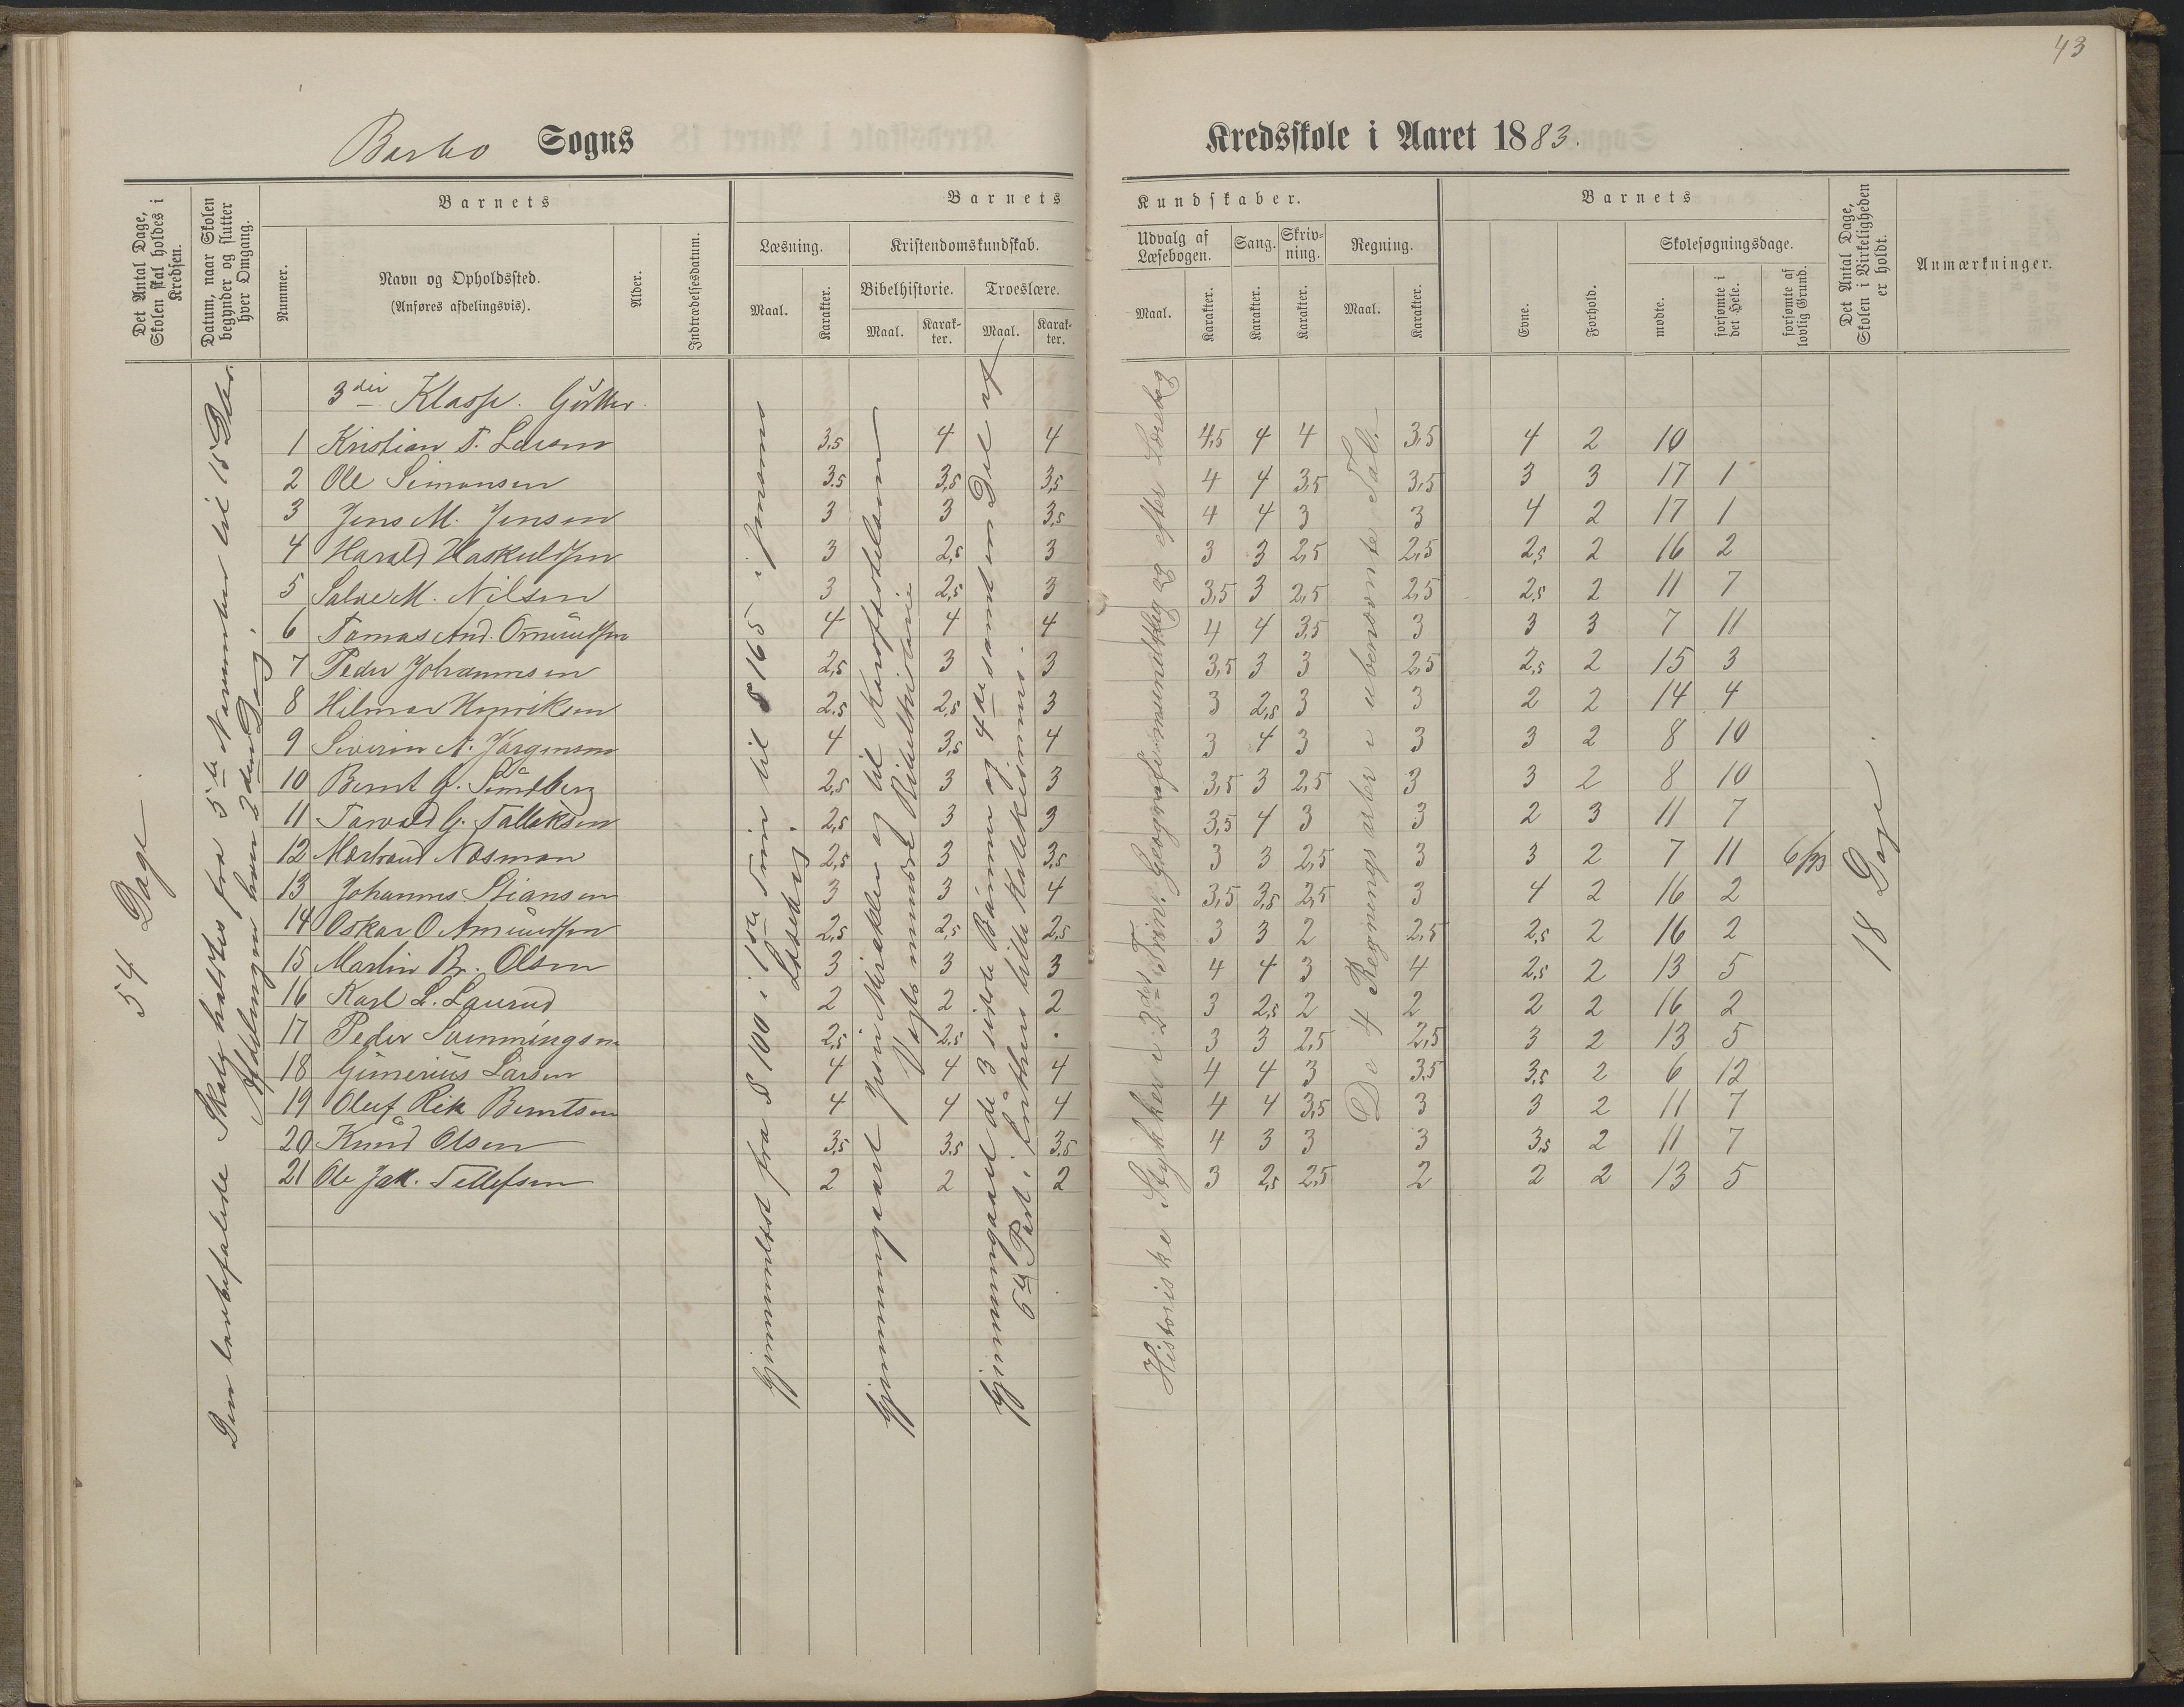 43
Barbo Sogns
Kredsskole i Aaret 1883.
Det Antal Dage, Skolen skal holdes i Kredsen.
Datum, naar Skolen begynder og slutter hver Omgang.
Barnets
Nummer.
Navn og Opholdssted.
(Anføres afdelingsvis).
Alder.
Indtrædelsesdatum.
Barnets
Kundskaber.
Læsning.
Maal.
Karakter.
Kristendomskundskab.
Bibelhistorie.
Maal.
Karakter.
Troeslære.
Maal.
Karakter.
Udvalg af Læsebogen.
Maal.
Karakter.
Sang.
Karakter.
Skrivning.
Karakter.
Regning.
Maal.
Karakter.
Barnets
Evne.
Forhold.
Skolesøgningsdage.
mødte.
forsømte i det Hele.
forsømte af lovlig Grund.
Det Antal Dage, Skolen i Virkeligheden er holdt.
Anmærkninger.
54 Dage
Den lovbefalede Skole holdtes fra 5te November til 15 Dbr.
Afdelingen hver 2den Dag.
3die Klasse. Gutter.
1 Kristian T. Larsen 3,5 4 4 4,5 4 4 3,5 4 2 10
2 Ole Simonsen 3.5 3,5 3,5 4 4 3,5 3,5 3 3 17 1
3 Jens M. Jensen 3 3 3,5 4 4 3 3 4 2 17 1
4 Harald Haskuldsen 3 2,5 3 3 3 2,5 2,5 2,5 2 16 2
5 Salve M. Nilsen 3 2,5 3 3,5 3 2,5 2,5 2,5 2 11 7
6 Tomas And. Omundsen 4 4 4 4 4 3,5 3 3 3 7 11
7 Peder Johannesen 2,5 3 3 3,5 3 3 2,5 2,5 2 15 3
8 Hilmar Henriksen 2,5 2,5 3 3 2,5 3 3 2 2 14 4
9 Siverin A. Jørgensen 4 3,5 4 3 4 3 3 3 2 8 10
10 Bernt G. Sundberg 2,5 3 3 3,5 3 2,5 3 3 2 8 10
11 Torvald G. Tallaksen 2,5 3 3 3,5 4 3 3 2 3 11 7
12 Mortvand Næsman 2,5 3 3,5 3 3 2,5 3 3 2 7 11
13 Johannes Stiansen 3 3 4 3,5 3,5 2,5 3 4 2 16 2
14 Oskar O. Amundsen 2,5 2,5 2,5 3 3 2 2,5 2,5 2 16 2
15 Martin Br. Olsen 3 3 3 4 4 3 4 2,5 2 13 5
16 Karl L. Laurud 2 2 2 3 2,5 2 2 2 2 16 2
17 Peder Svenningsen 2,5 2,5 . 3 3 2,5 2,5 3 2 13 5
18 Gunerius Larsen 4 4 4 4 4 3 3,5 3,5 2 6 12
19 Oluf Rik Berntsen 4 4 4 4 4 3,5 3 3 2 11 7
20 Knud Olsen 3,5 3,5 3,5 4 3 3 3 3,5 2 11 7
21 Ole Jak. Tellefsen 2 2 2 3 2,5 2,5 2 2 2 13 5
Gjennemlæst fra S 100 i 1ste Trin til S 165 i Jensens Læsebog.
Gjennemgaaet Jesu Mirakler og til Korsfæstelsen Vogts mindre Bibelhistorie
Gjennemgaaet de 3 sidste Bønner og 4de samt en Del af 5te Part i Luthers lille Katekismus.
Historiske Stykker i 2det Trin. Geografi mundtlig og efter Lærebog
De 4 Regningsarter i ubenævnte Tal.
18 Dage